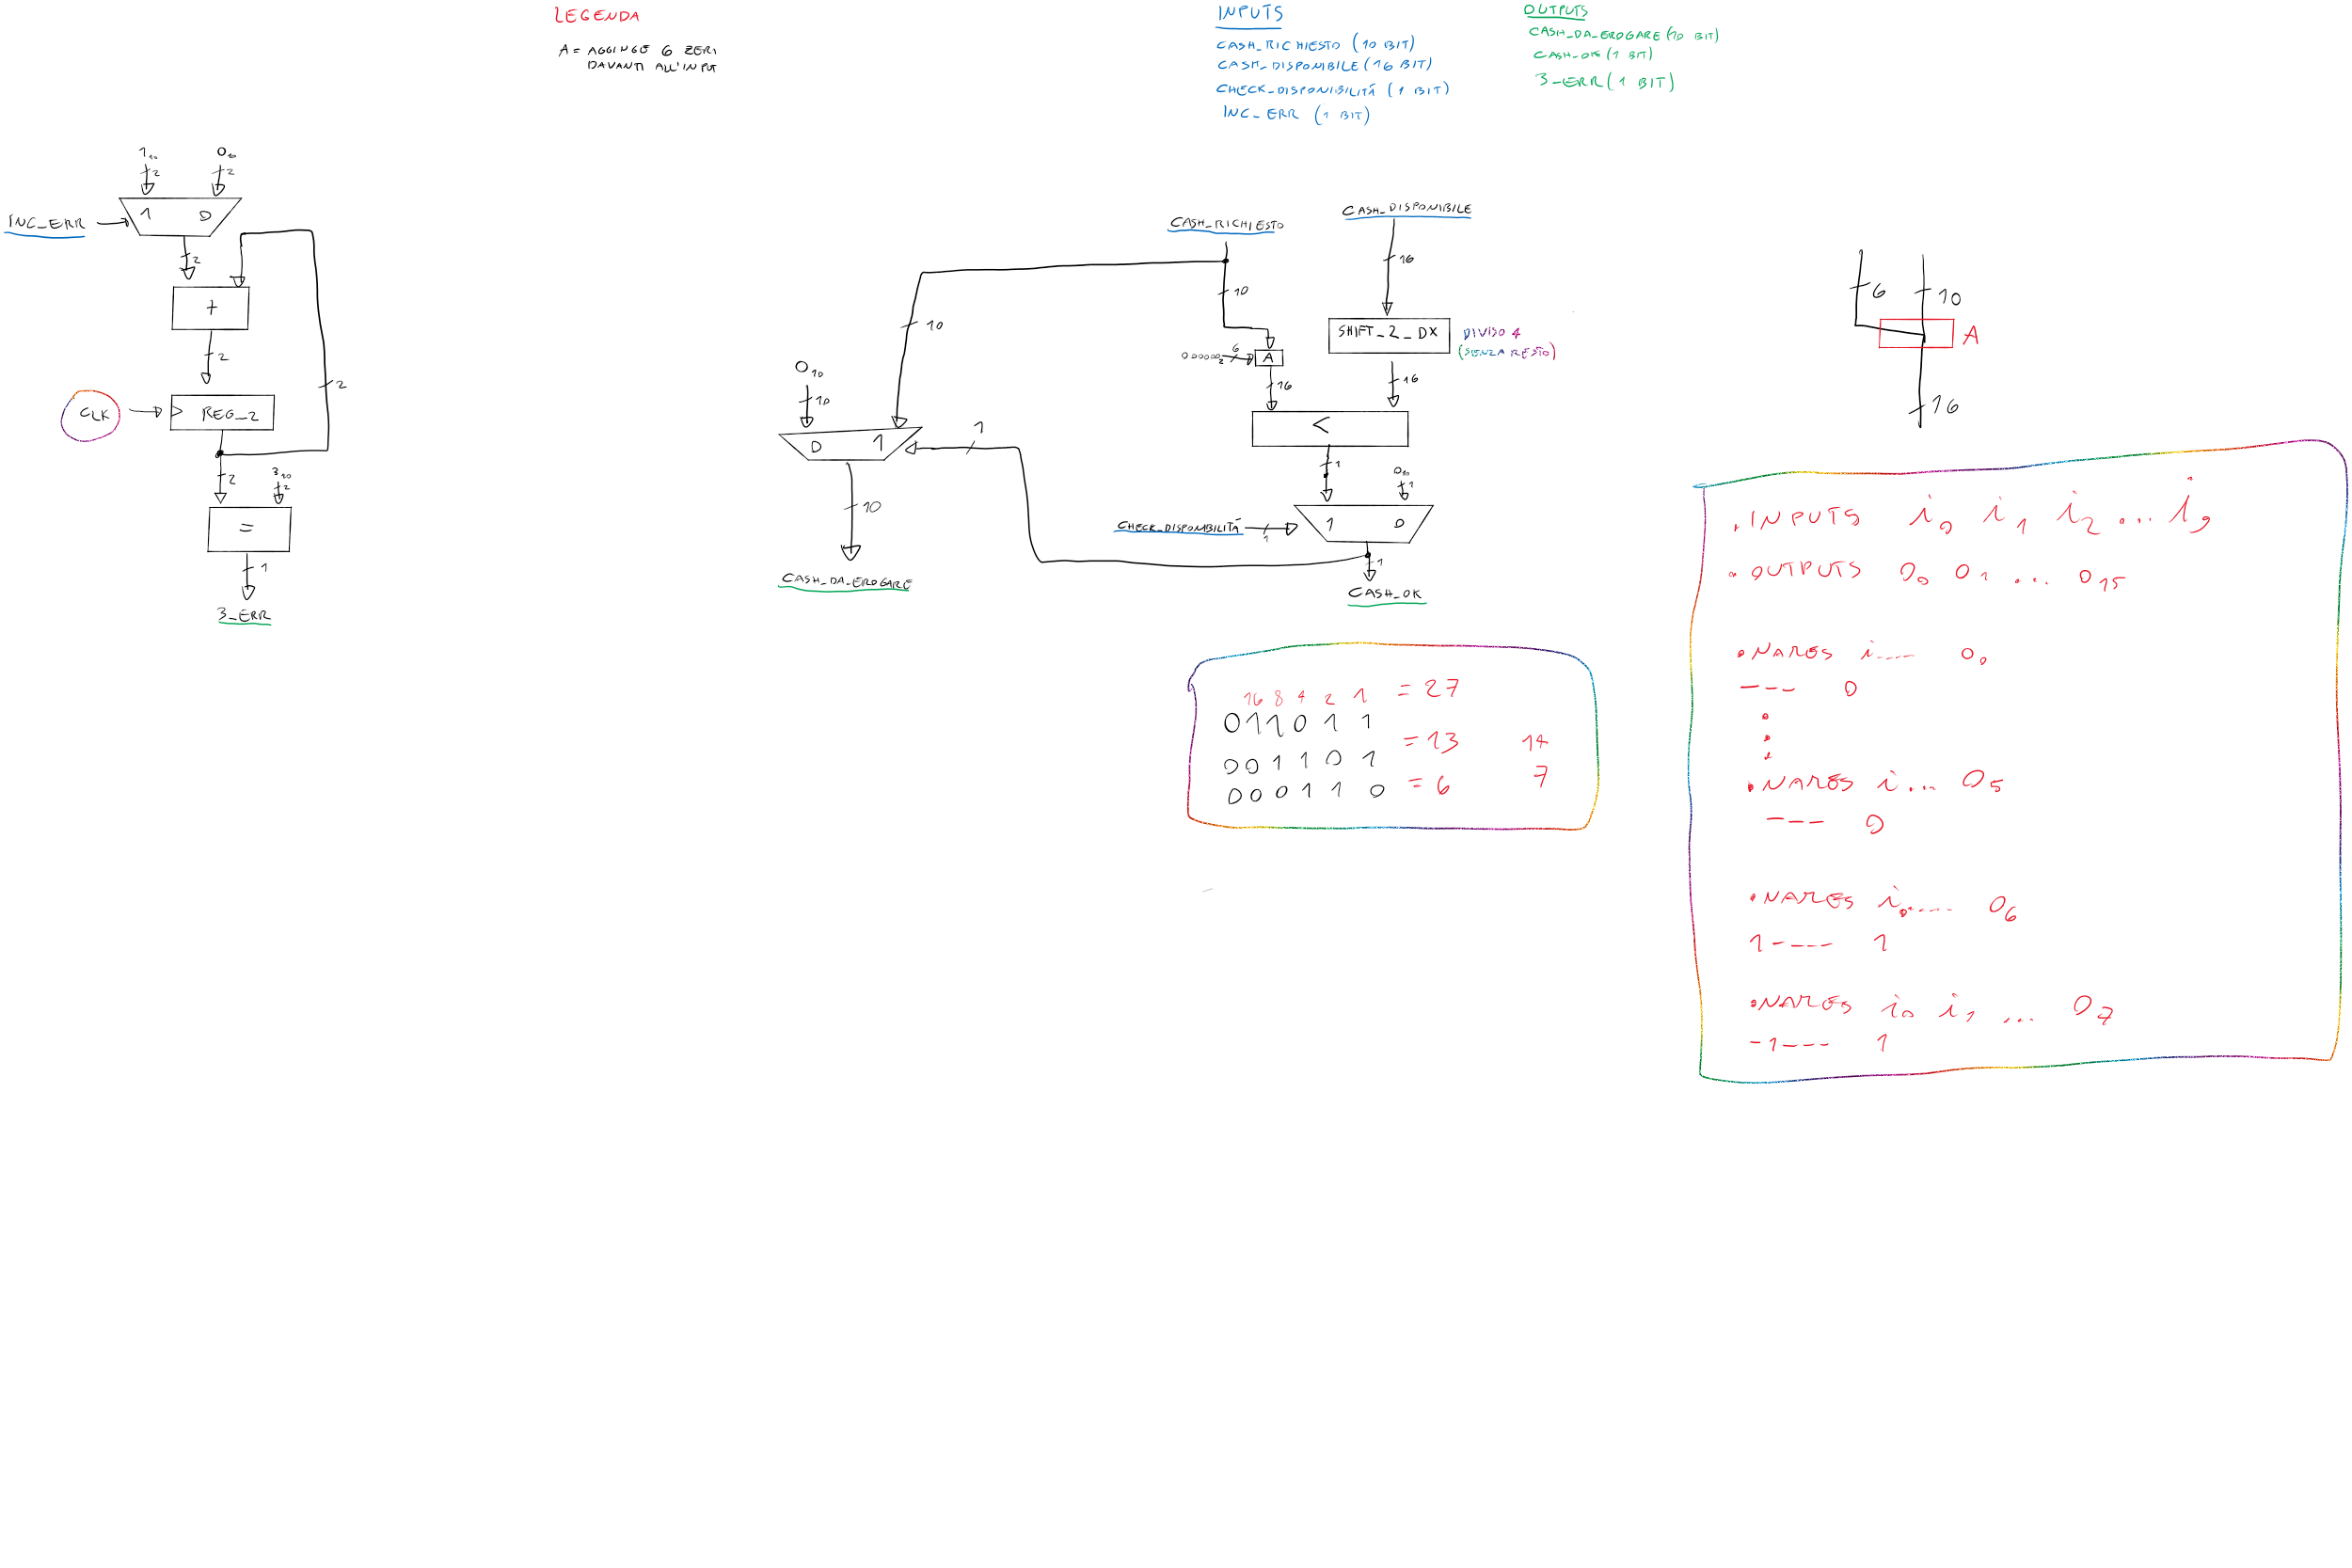 LEGENDA
A = AGGIUNGE 6 ZERI
DAVANTI ALL'INPUT
INPUTS
CASH_RICHIESTO (10 BIT)
CASH_DISPONIBILE (16 BIT)
CHECK_DISPONIBILITÀ (1 BIT)
INC_ERR (1 BIT)
OUTPUTS
CASH_DA_EROGARE (10 BIT)
CASH_OK (1 BIT)
3_ERR (1 BIT)
2 2
1 0
INC_ERR
2
+
2
2
CLK
REG_2
2
3₁₀
2
=
1
3_ERR
CASH_RICHIESTO
CASH_DISPONIBILE
16
10
10
SHIFT_2_DX
DIVISO 4
(SENZA RESTO)
000000₂ 6
A
0₁₀
10
16
16
<
0 1
1
1
1
CHECK_DISPONIBILITÀ
1
1 0
1
10
CASH_DA_EROGARE
CASH_OK
6 10
A
16
16 8 4 2 1 = 27
011011
= 13 14
001101
000110 = 6 7
.INPUTS i₀ i₁ i₂ ... i₉
.OUTPUTS O₀ O₁ ... O₁₅
.NAMES i.... O₀
--- 0
.NAMES i... O₅
--- 0
.NAMES i₀.... O₆
1---- 1
.NAMES i₀ i₁ ... O₇
-1--- 1